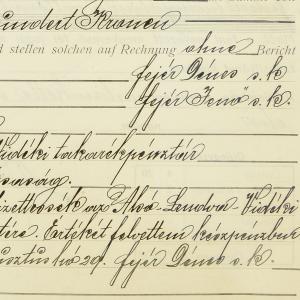 hundert Kronen
nd stellen solchen auf Rechnung ohne Bericht
fejér Dénes s.k.
fejér Jenő s.k.
Vidéki takarékpénztár
saság.
izettessék az Alsó-Lendva-Vidéki
tára. Értékét felvettem készpénzben
usztus hó 29. fejér Dénes s.k.